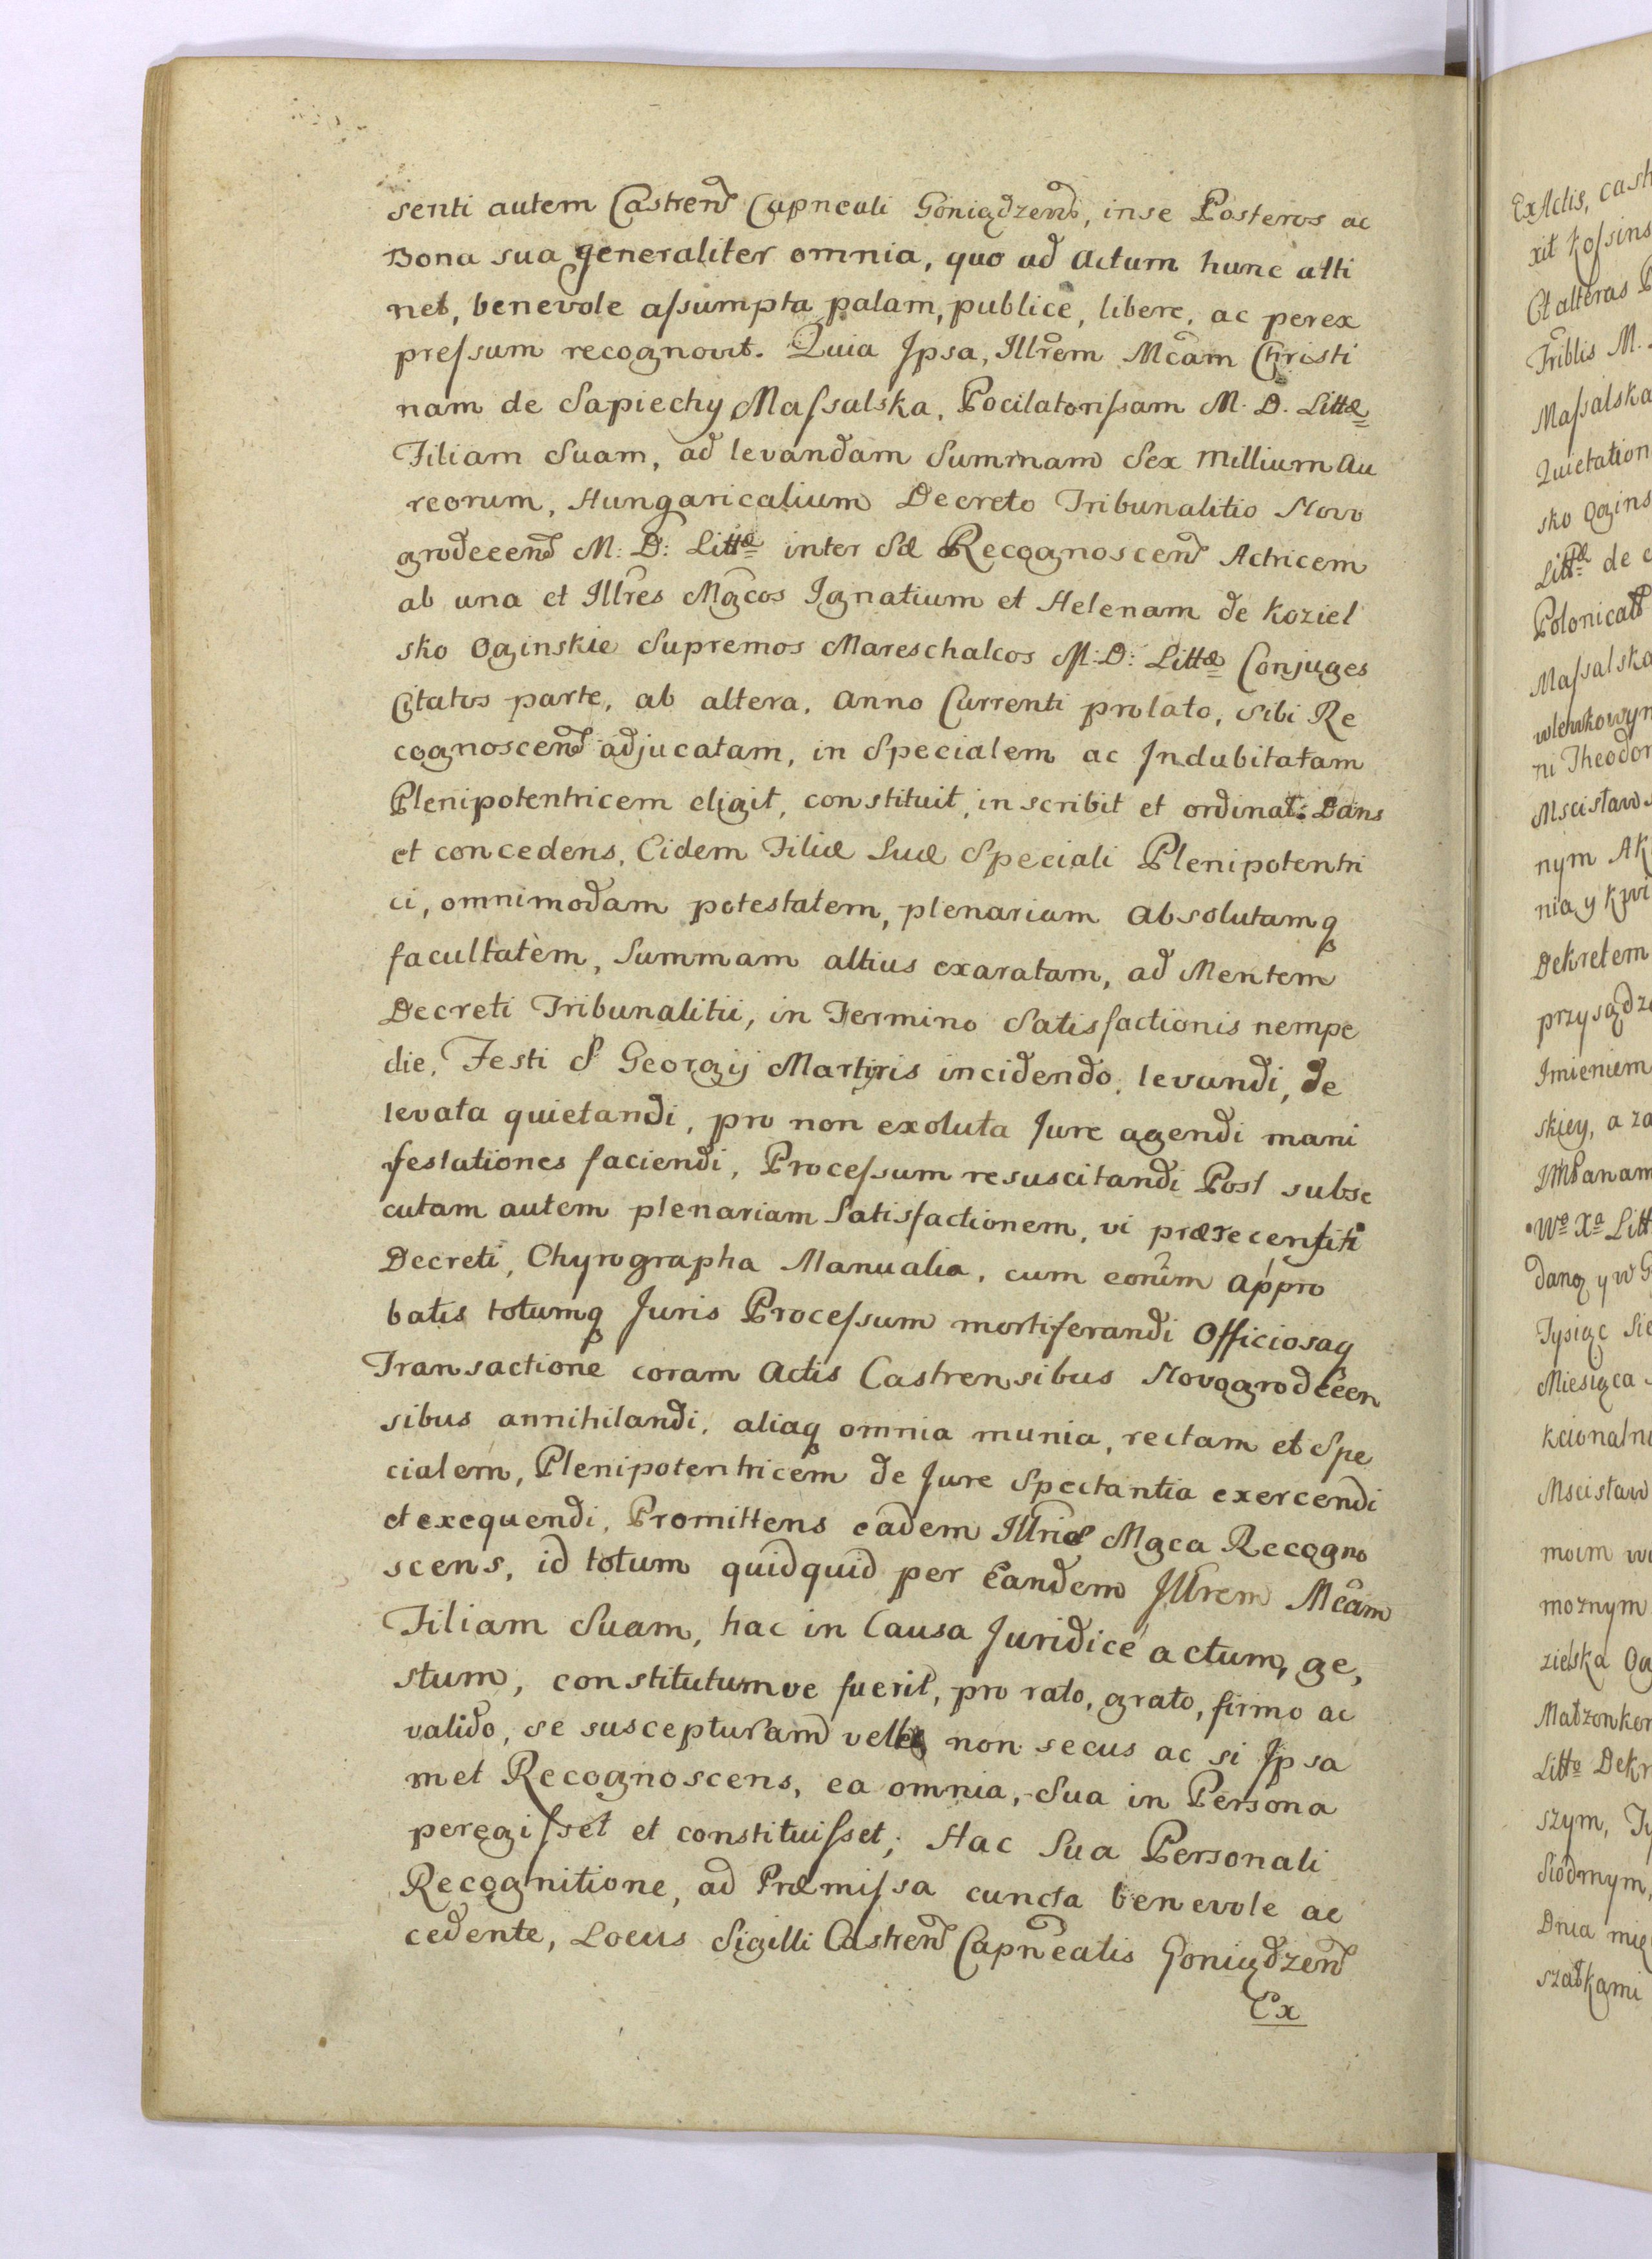 senti autem Castrens Capneali Goniądzens, in se Posteros ac
Bona sua generaliter omnia, quo ad Actum hunc atti
net, benevole aſsumpta palam, publicè, libere, ac perex
preſsum recognovit. Quia Jpsa, Jllrem Mcam Christi
nam de Sapiechy Maſsalska, Pocilatoriſsam M. D. Littæ
Filiam Suam, ad levandam Summam Sex Millium Au
reorum, Hungaricalium Decreto Tribunalitio Novo
grodecens M: D: Littæ inter Se Recognoscens Actricem
ab una et Jllres Mgcos Jgnatium et Helenam de Koziel
sko Oginskie Supremos Mareschalcos M: D: Littæ Conjuges
Citatos parte, ab altera, Anno Currenti prolato, sibi Re
cognoscens adjucatam, in Specialem ac Jndubitatam
Plenipotentricem eligit, constituit, inscribit et ordinat: Dans
et concedens, Eidem Filiæ Suæ Speciali Plenipotentri
ci, omnimodam potestatem, plenariam Absolutamq
facultatem, Summam altius exaratam, ad Mentem
Decreti Tribunalitii, in Termino Satisfactionis nempe
die, Festi S Georgij Martyris incidendo, levandi, de
levata quietandi, pro non exoluta Jure agendi mani
festationes faciendi, Proceſsum resuscitandi Post subse
cutam autem plenariam Satisfactionem, vi prærecensiti
Decreti, Chyrographa Manualia, cum eorum appro
batis totumq Juris Proceſsum mortiferandi Officiosaq
Transactione coram Actis Castrensibus Novogrodecen
sibus annihilandi, aliaq omnia munia, rectam et Spe
cialem, Plenipotentricem de Jure Spectantia exercendi
et exequendi, Promittens eadem Jllris Mgca Recogno
scens, id totum quidquid per Eandem Jllrem Mcam
Filiam Suam, hac in Causa Juridicè actum, ge,
stum, constitutumve fuerit, pro rato, grato, firmo ac
valido, se suscepturam velle non secus ac si Jpsa
met Recognoscens, ea omnia, Sua in Persona
peregiſset et constituiſset; Hac Sua Personali
Recognitione, ad Præmiſsa cuncta benevole ac
cedente, Locus Sigilli Castrens Capnealis Goniądzens
Ex
Ex Actis, cast
xit Koſsins
Et alteras P
Triblis M.
Maſsalska
Quietation
sko Ogins
Littæ de
Polonicali
Maſsalska
wlewkowym
ni Theodor
Mscisław
nym Ak
nia y kwi
Dekretem
przysądz
Jmieniem
skiey, a za
JMPanam
Wo Xa Litt
daną y w G
Tysiąc Sie
Miesiąca
kcionaln
Mscisław
moim w
moznym
zielska Og
Małzonkom
Litto Dekr
szym, Ty
Siodmym,
Dnia mię
szałkami